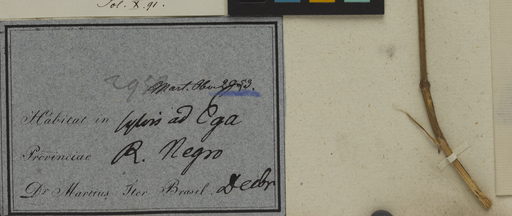 Tol. X. 91.
Mart. Obs. 2953.
Habitat in sylvis ad Ega
Provinciae R. Negro
Dr. Martius Iter Brasil. Decbr